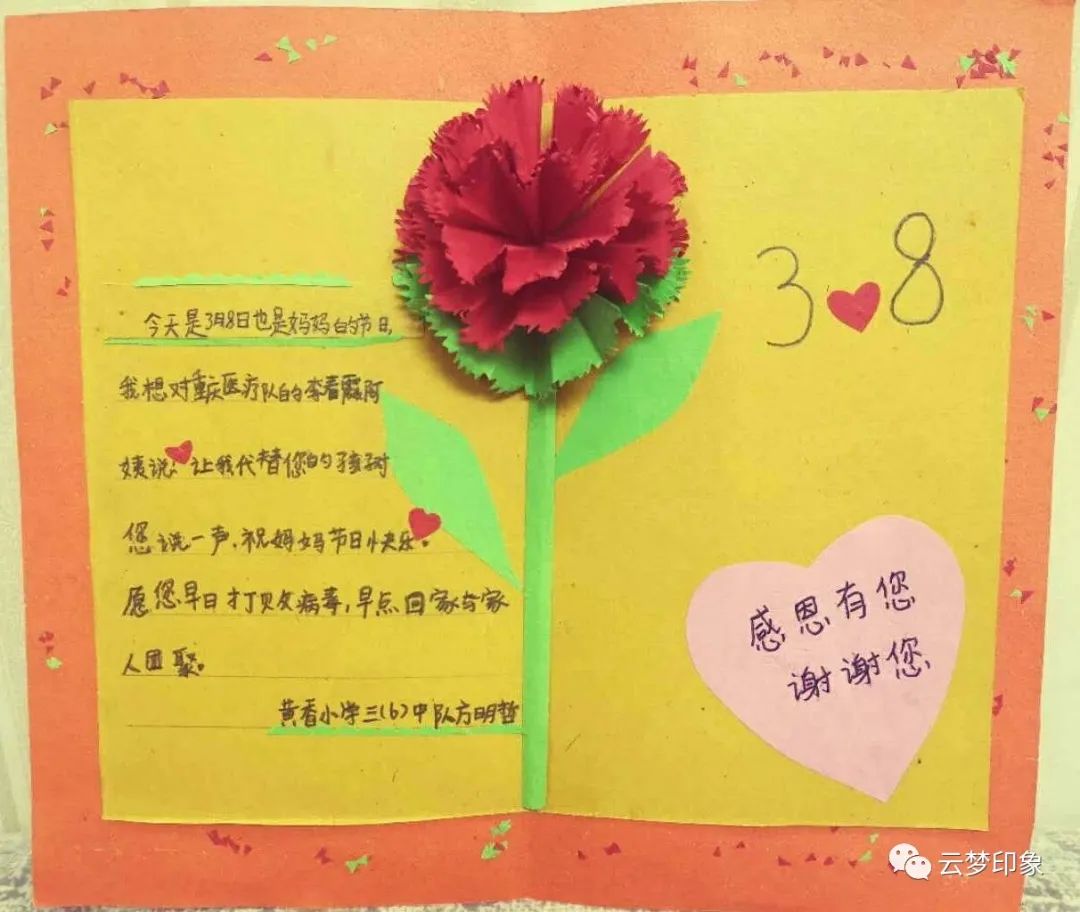 今天是3月8日也是妈妈的节日,
我想对重庆医疗队的李春霞阿
姨说:让我代替您的孩子对
您说一声,祝妈妈节日快乐。
愿您早日打败病毒,早点回家与家
人团聚。
黄香小学三(6)中队方明哲
3 8
感恩有您
谢谢您
云梦印象